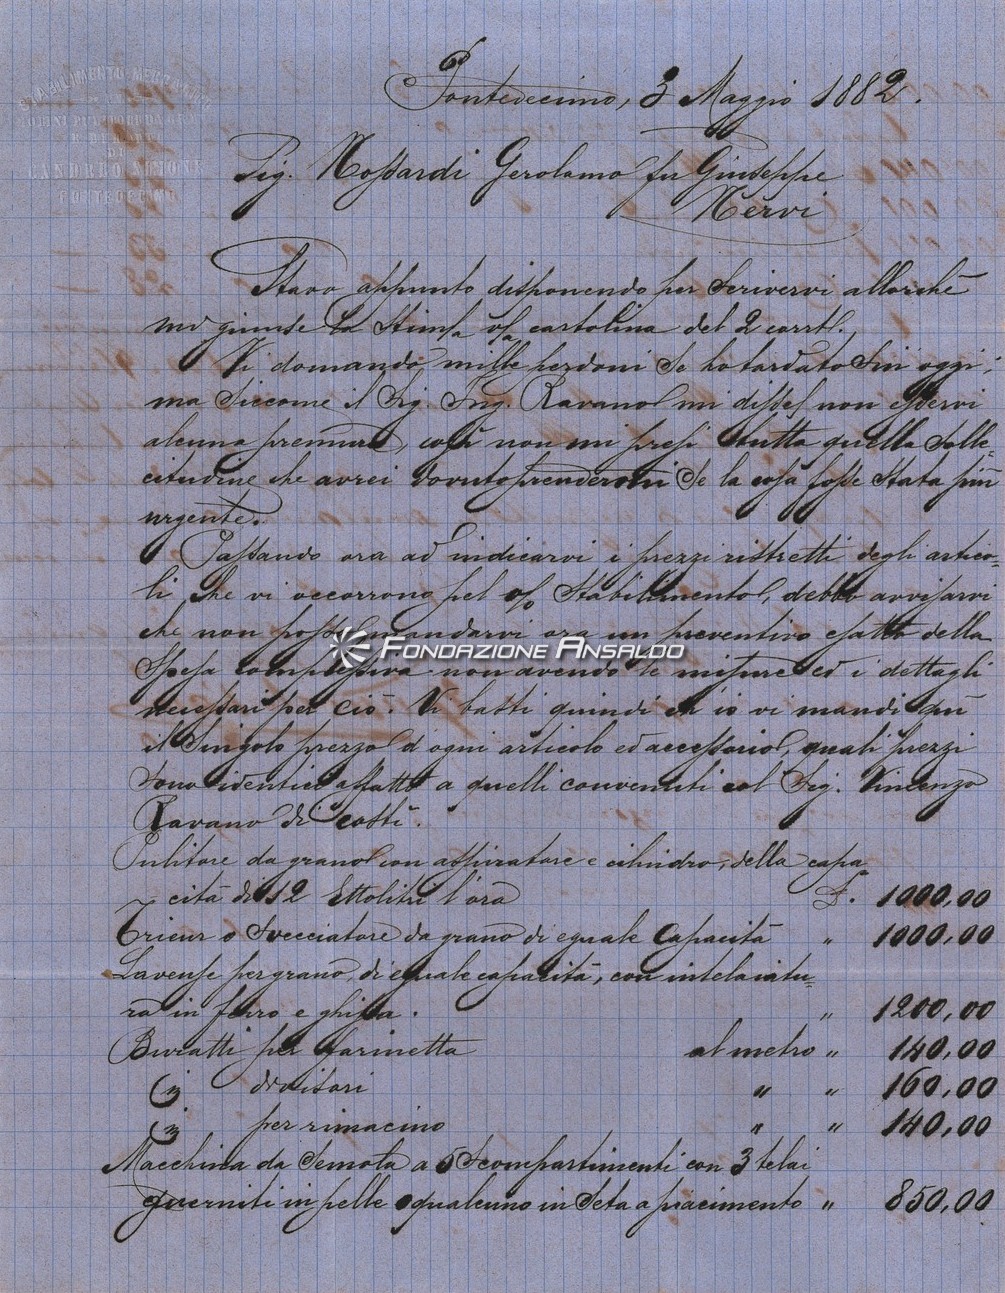 STABILIMENTO MECCANICO
DI
CANDREO SIMONE
PONTEDECIMO
Pontedecimo, 3 Maggio 1882.
Sig. Nossardi Gerolamo fu Giuseppe
Nervi
Stavo appunto disponendo per scrivervi allorchè
mi giunse la stima vsa cartolina del 2 corrte.
Vi domando mille perdoni se ho tardato sin oggi,
ma siccome il Sig. Ing. Ravano mi disse non esservi
alcuna premura, così non mi presi tutta quella solle=
citudine che avrei dovuto prendermi se la cosa fosse stata più
urgente.
Passando ora ad indicarvi i prezzi ristretti degli artico=
li che vi occorrono pel Stabilimento, debbo avvisarvi
che non posso mandarvi ora un preventivo esatto della
spesa complessiva non avendo le misure ed i dettagli
necessari per ciò. Vi basti quindi ch'io vi mandi qui
il singolo prezzo d'ogni articolo ed accessorio, quali prezzi
sono identici affatto a quelli convenuti col Sig. Vincenzo
Ravano di costì.
Pulitore da grano con aspiratore e cilindro, della capa
cità di 12 Ettolitri l'ora £. 1000,00
Trieur o Svecciatore da grano di eguale capacità " 1000,00
Laveuse per grano di eguale capacità, con intelaiatu=
ra in ferro e ghisa. " 1200,00
Buratti per farinetta al metro " 140,00
(") divisori " " 160,00
(") per rimacino " " 140,00
Macchina da Semola a 5 Scompartimenti con 3 telai
guerniti in pelle o qualcuno in seta a piacimento " 850,00
FONDAZIONE ANSALDO